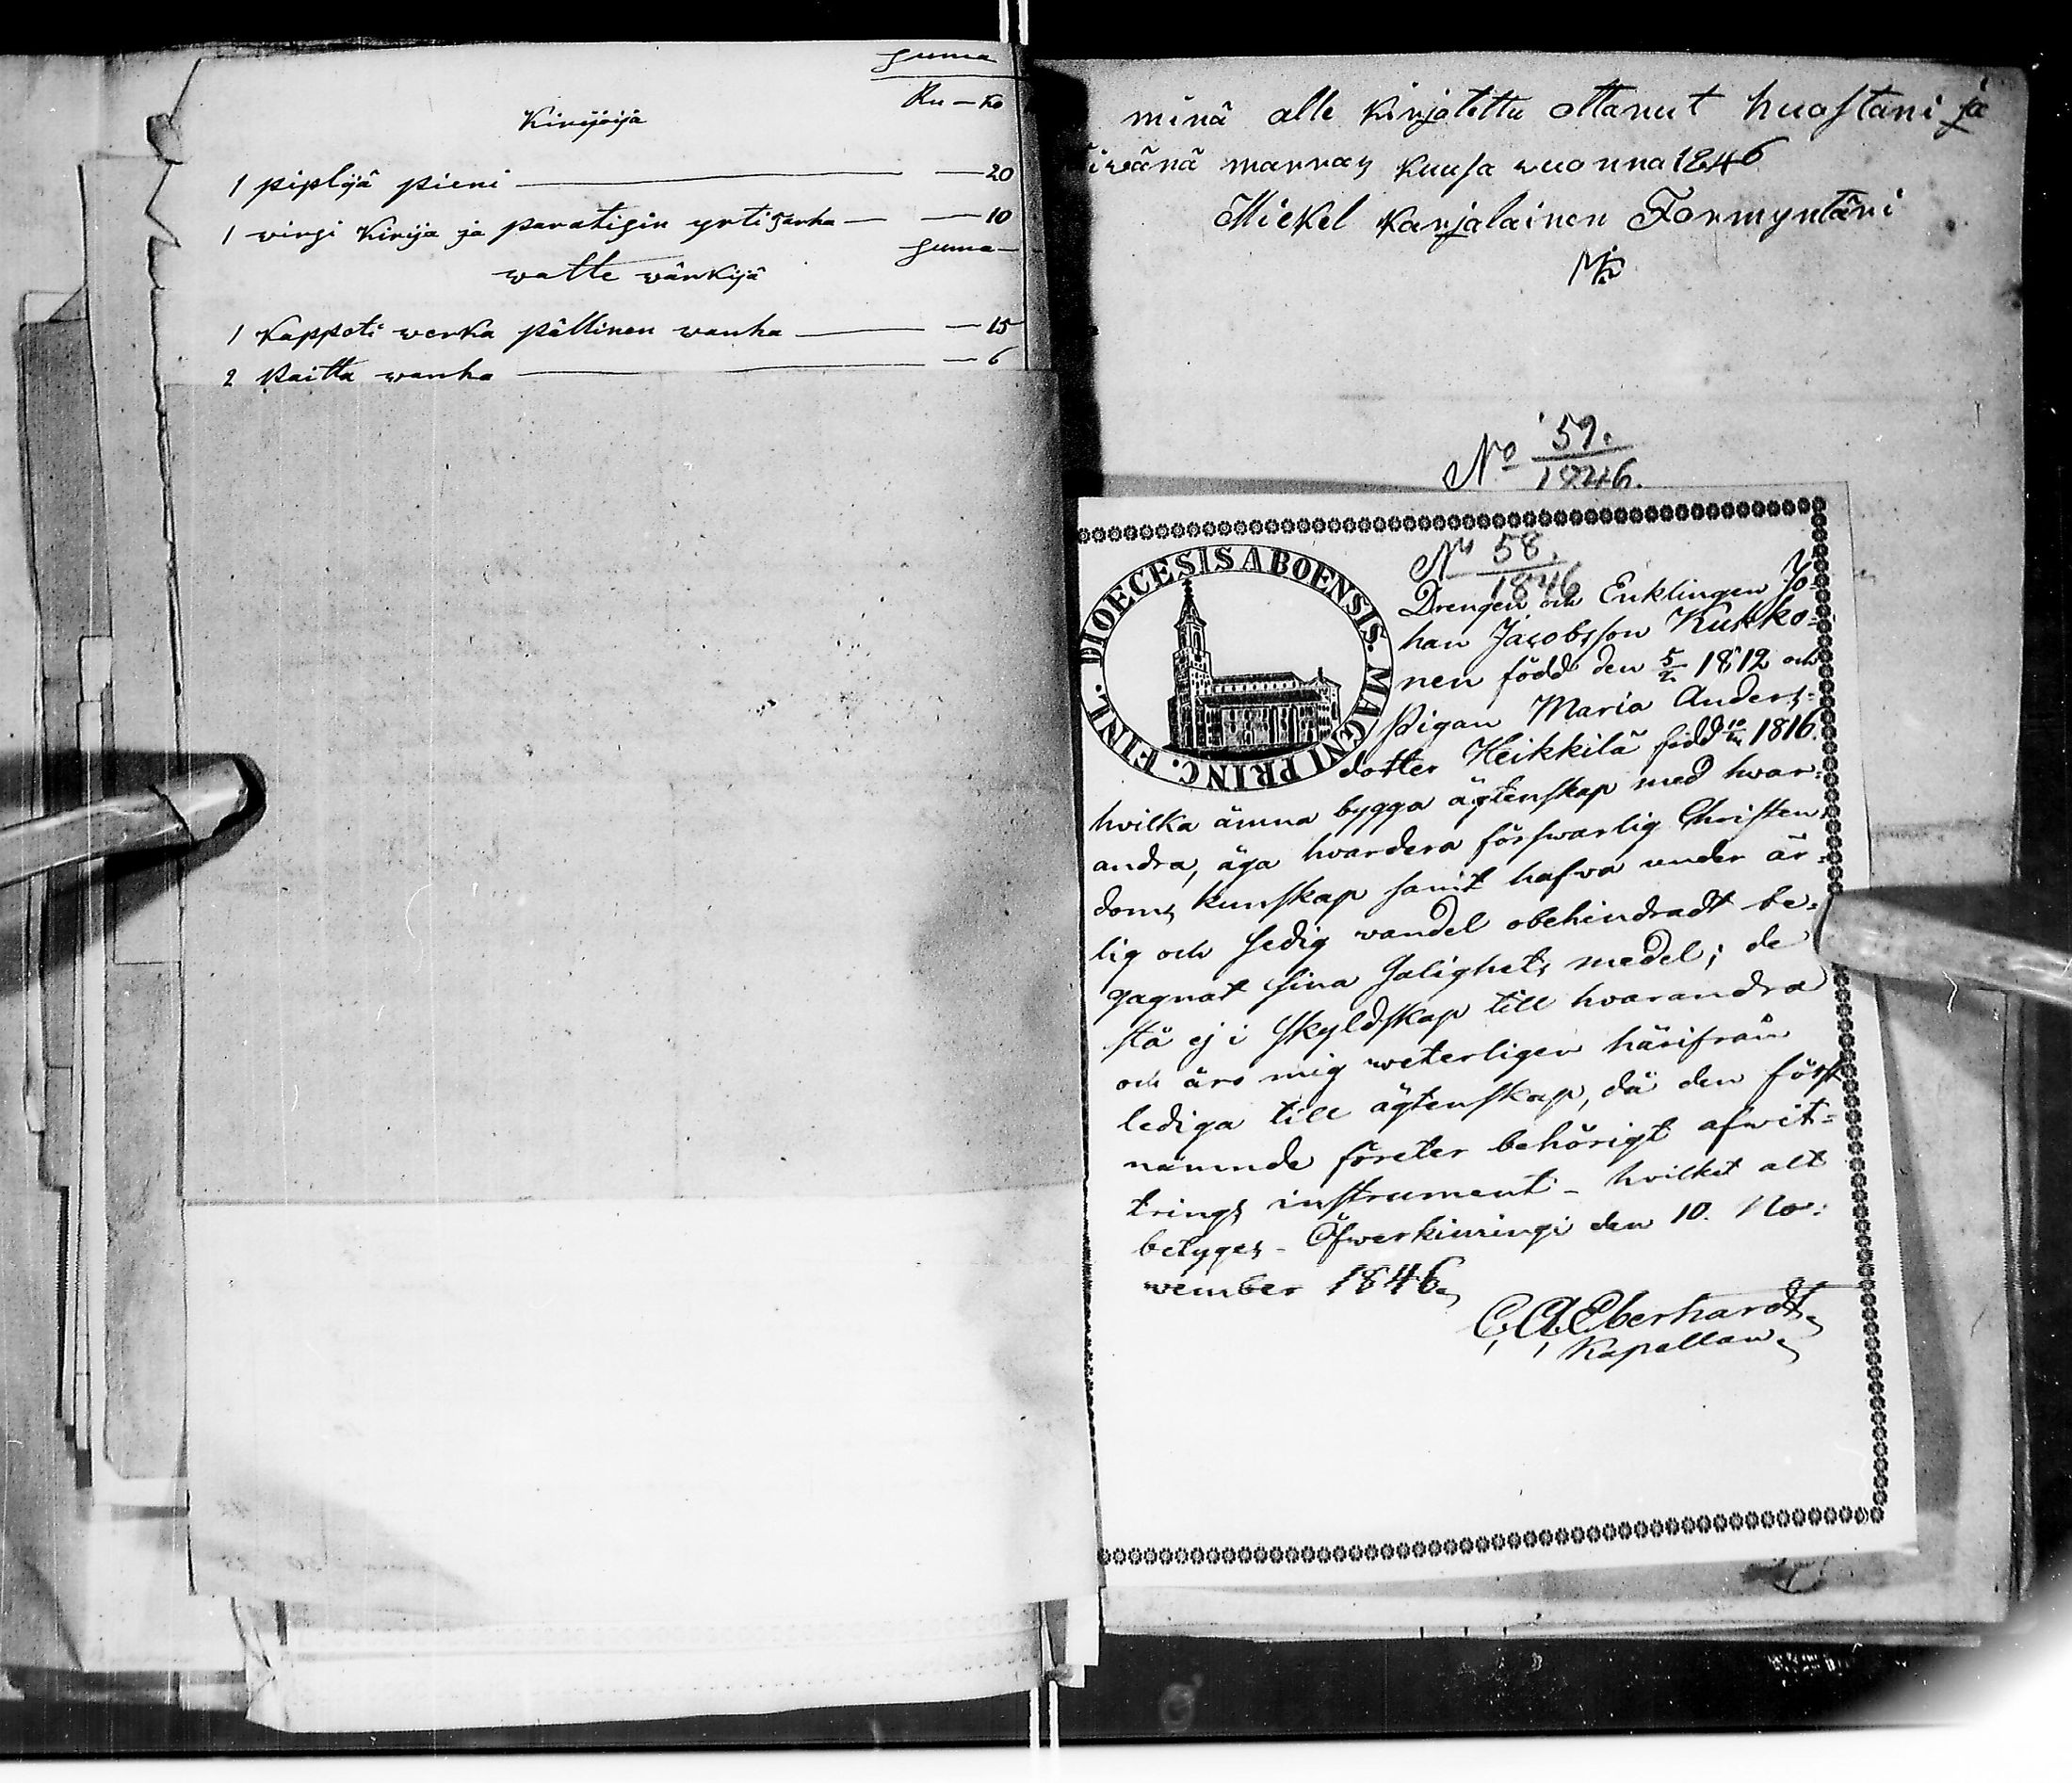 suma
Ru - ko
Kirijoija
1 piplijä pieni — 20
1 virsi Kirija ja paratisin yrtisarha — 10
suma
watte wärkijä
1 Kappoti werka pällinen wanha — 15
2 paitta wanha — 6
minä alle kirjotettu ottanut huostani ja
iwänä marras kuusa wuonna 1846
Mickel karjalainen Formyntäri
No 59.
1846.
DIOECESIS ABOENSIS. MAGNI PRINC. FINL.
No 58.
1846
Drengen och Enklingen Jo-
han Jacobsson Kukko=
nen född den 5/2 1812 och
Pigan Maria Anders=
dotter Heikkilä född 1816.
hvilka ämna bygga ägtenskap med hvar=
andra, äga hvardera förswarlig Christen=
doms kunskap samt hafva under är=
lig och sedig vandel obehindradt be=
gagnat sina Salighets medel; de
stå ej i Skyldskap till hvarandra
och äro mig veterligen härifrån
lediga till ägtenskap, då den först
nämnde företer behörigt afwit=
trings instrument - hvilket alt
betyges - Öfwerkiiminge den 10. No=
vember 1846.
C. A. Eberhardt.
Kapellan.